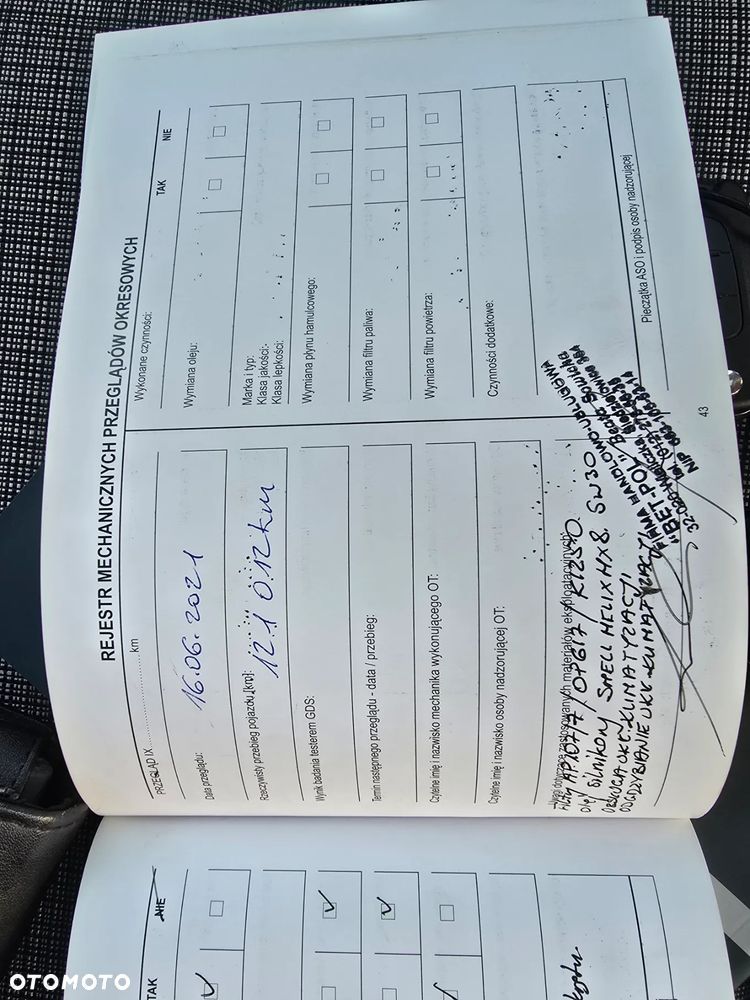 REJESTR MECHANICZNYCH PRZEGLĄDÓW OKRESOWYCH
PRZEGLĄD IX ........................ km
Data przeglądu: 16.06.2021
Rzeczywisty przebieg pojazdu [km]: 121 012 km
Wynik badania testerem GDS:
Termin następnego przeglądu - data / przebieg:
Czytelne imię i nazwisko mechanika wykonującego OT:
Czytelne imię i nazwisko osoby nadzorującej OT:
Uwagi dotyczące zastosowanych materiałów eksploatacyjnych
FILTRY AP107/7 / OP617 / K1250
olej silnikowy SHELL HELIX HX8 5W30
OBSŁUGA UKŁ. KLIMATYZACJI
ODGRZYBIANIE UKŁ. KLIMATYZACJI
Wykonane czynności:
TAK NIE
Wymiana oleju:
Marka i typ:
Klasa jakości:
Klasa lepkości:
Wymiana płynu hamulcowego:
Wymiana filtru paliwa:
Wymiana filtru powietrza:
Czynności dodatkowe:
FIRMA HANDLOWO-USŁUGOWA
"BET-POL"
32-020 Wieliczka
NIP
Pieczątka ASO i podpis osoby nadzorującej
43
TAK NIE
OTOMOTO